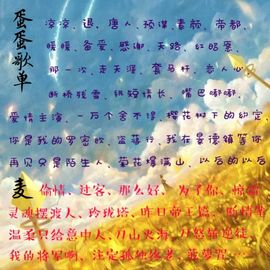 蛋蛋歌单
凉凉、退、唐人、预谋、素颜、帝都、
暖暖、备爱、悲谢、天路、红昭愿
那一次、走天涯、套马杆、恋人心
断桥残雪、纸短情长、嘴巴嘟嘟、
爱情主演、一万个舍不得、樱花树下的约定、
你是我的罗密欧、盗墓行、我在景德镇等你
再见只是陌生人、菊花爆满山、以后的以后
麦
偷情、过客、那么好、为了你、惊
灵魂摆渡人、玲珑塔、昨日帝王墙、
温柔只给意中人、刀山火海、万怒
我的将军啊、注定孤独终老、菠萝